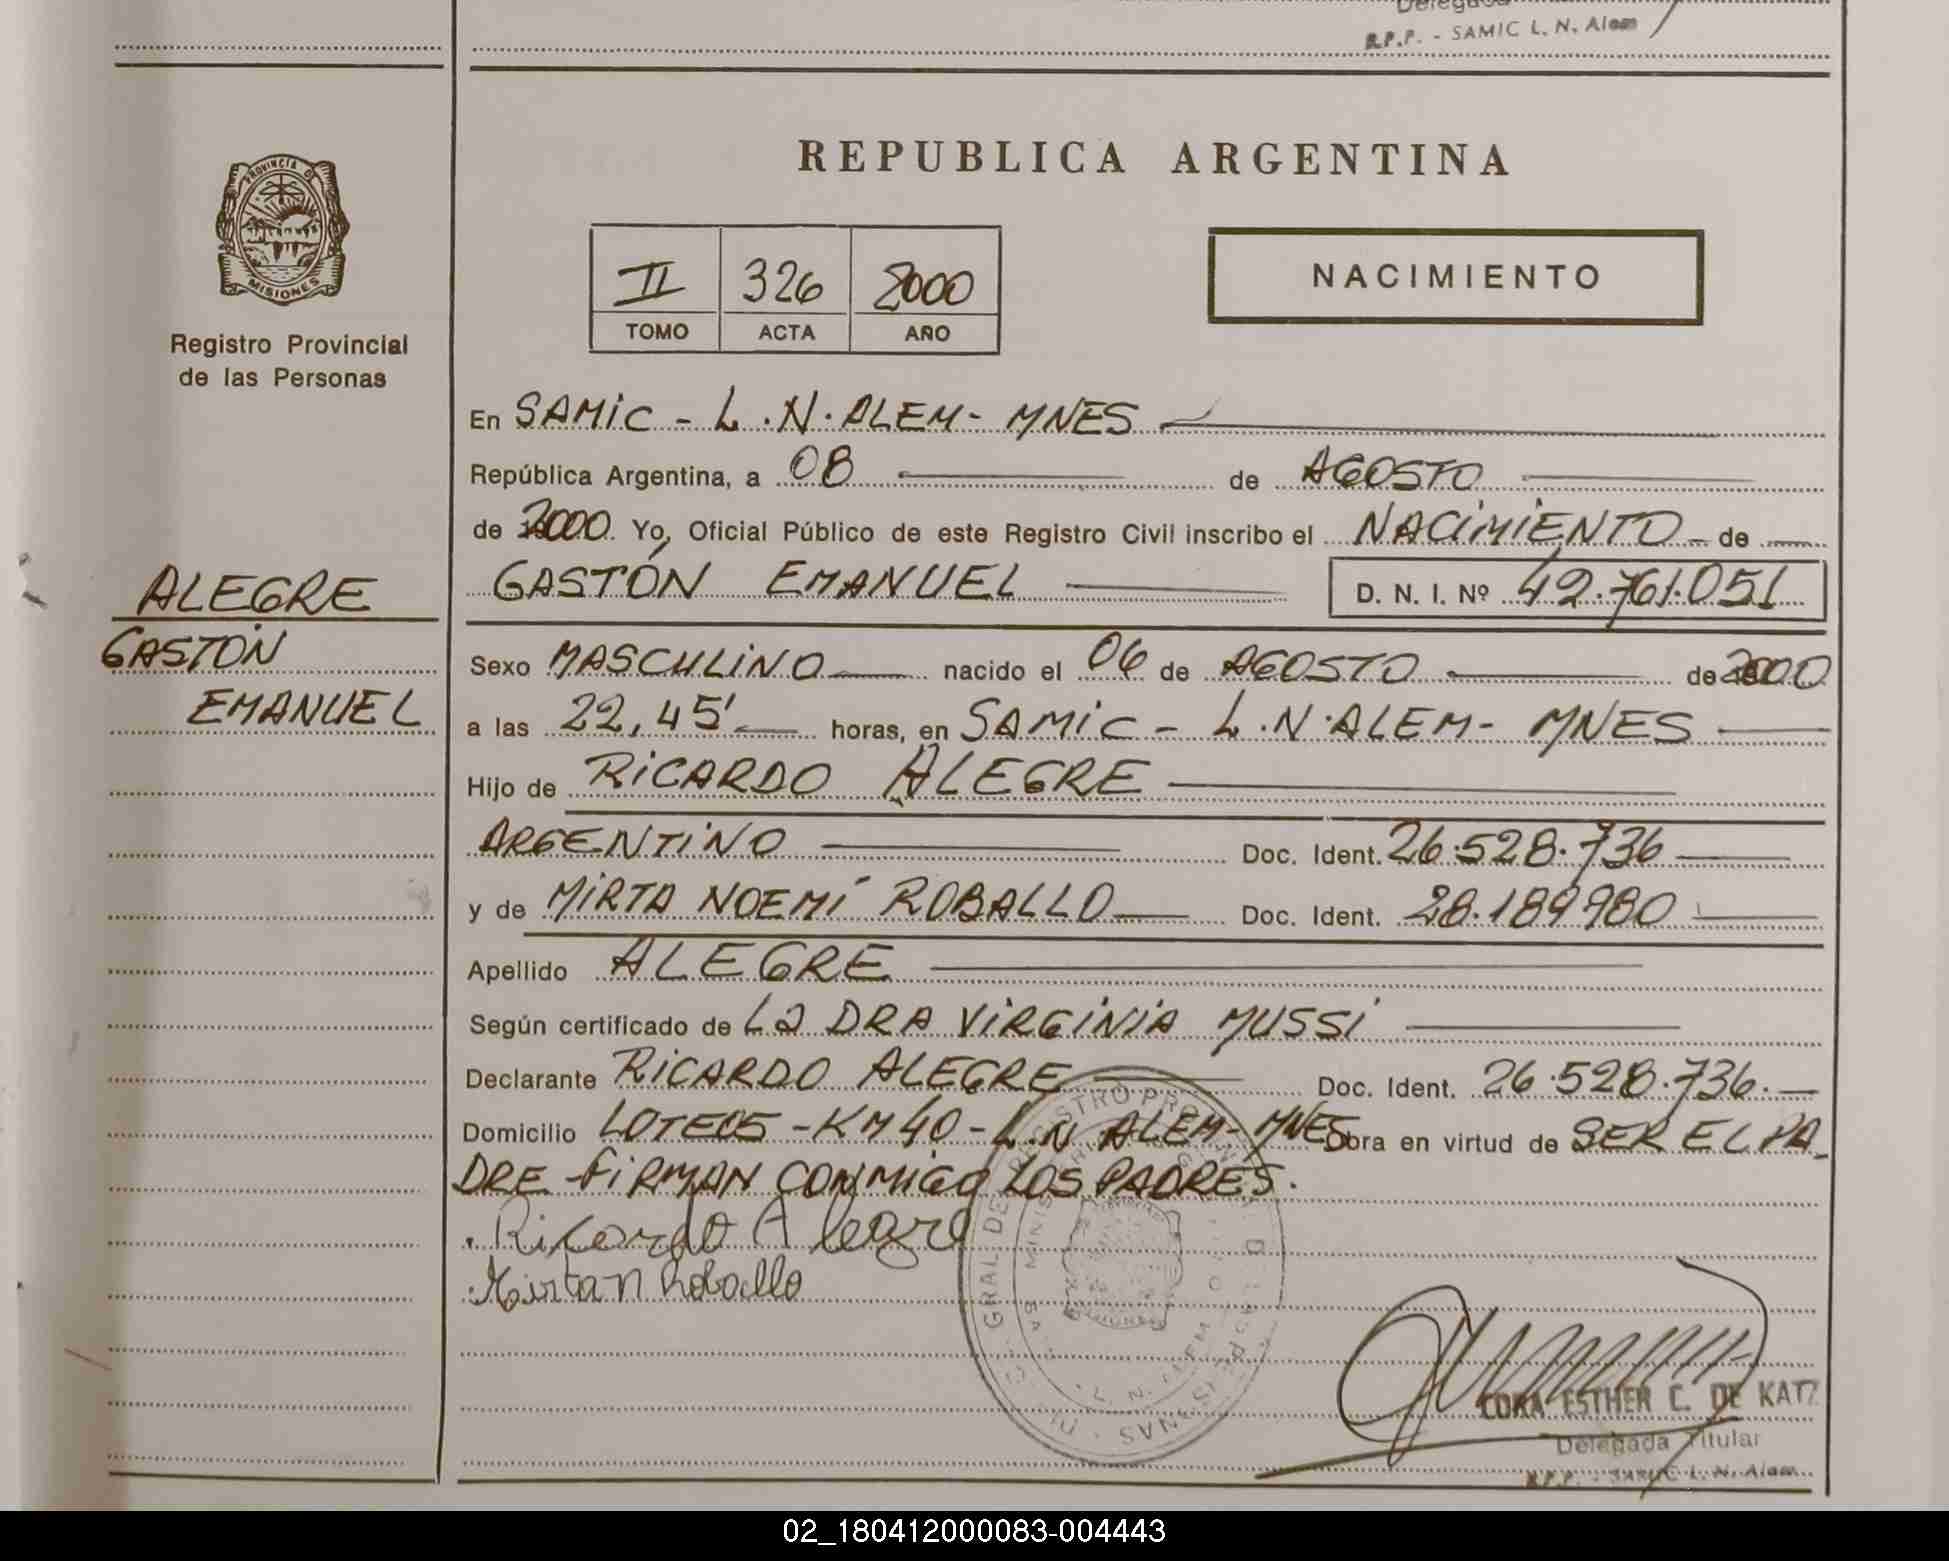 Delegada
R.P.P. - SAMIC L. N. Alem
PROVINCIA DE
MISIONES
Registro Provincial
de las Personas
ALEGRE
GASTÓN
EMANUEL
REPUBLICA ARGENTINA
II 326 2000
TOMO ACTA AÑO
NACIMIENTO
En SAMIC - L.N. ALEM - MNES
República Argentina, a 08 de AGOSTO
de 2000. Yo, Oficial Público de este Registro Civil inscribo el NACIMIENTO de
GASTÓN EMANUEL D. N. I. Nº 42.761.051
Sexo MASCULINO nacido el 06 de AGOSTO de 2000
a las 22,45' horas, en SAMIC - L.N. ALEM - MNES
Hijo de RICARDO ALEGRE
ARGENTINO Doc. Ident. 26.528.736
y de MIRTA NOEMÍ ROBALLO Doc. Ident. 28.189980
Apellido ALEGRE
Según certificado de LA DRA VIRGINIA MUSSI
Declarante RICARDO ALEGRE Doc. Ident. 26.528.736.
Domicilio LOTE 05 - KM 40 - L.N ALEM - MNES Obra en virtud de SER EL PA-
DRE - FIRMAN CONMIGO LOS PADRES.
Ricardo Alegre
Mirta N Roballo
CORA ESTHER C. DE KATZ
Delegada Titular
R.P.P. - SAMIC L. N. Alem
02_180412000083-004443